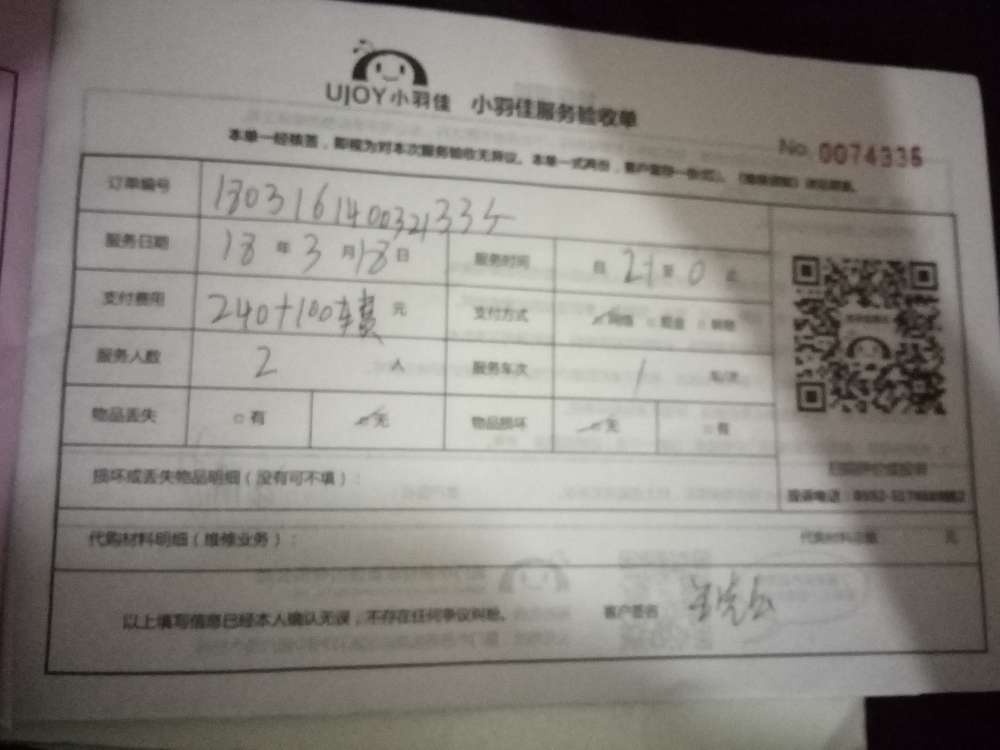 UJOY小羽佳 小羽佳服务验收单
No. 0074335
本单一经核签，即视为对本次服务验收无异议。本单一式两份，客户留存一份
订单编号
服务日期 18 年 3 月 18 日 服务时间 自 21 至 0 止
支付费用 240+100车费 元 支付方式 网络 现金 转账
服务人数 2 人 服务车次 1 车/次
物品丢失 有 无 物品损坏 无 有
损坏或丢失物品明细（没有可不填）：
投诉电话：
代购材料明细（维修业务）： 代购材料总额 元
以上填写信息已经本人确认无误，不存在任何争议纠纷。 客户签名